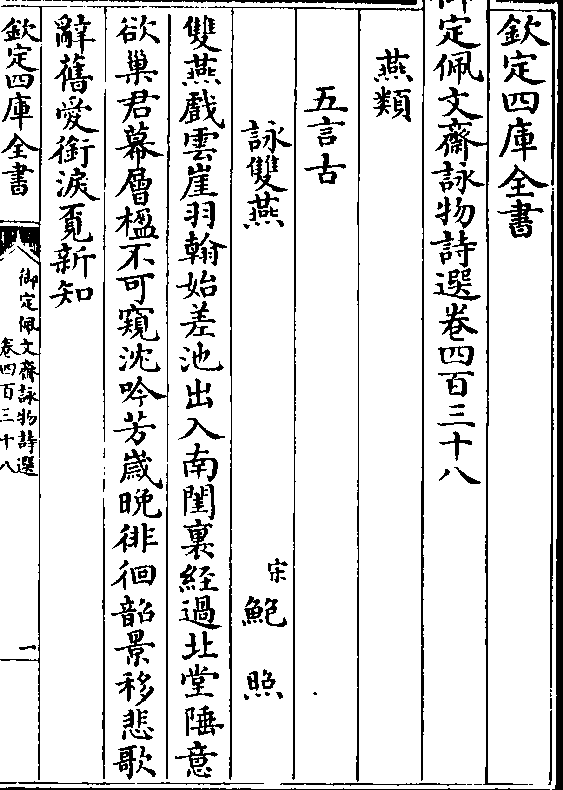 欽定四庫全書
御定佩文齋詠物詩選卷四百三十八
燕類
五言古
詠雙燕
宋
鮑照
雙燕戲雲崖羽翰始差池出入南閨裏經過北堂陲意
欲巢君幕層楹不可窺沈吟芳嵗晚徘徊韶景移悲歌
辭舊愛銜淚覓新知
欽定四庫全書
御定佩文齋詠物詩選
卷四百三十八
一